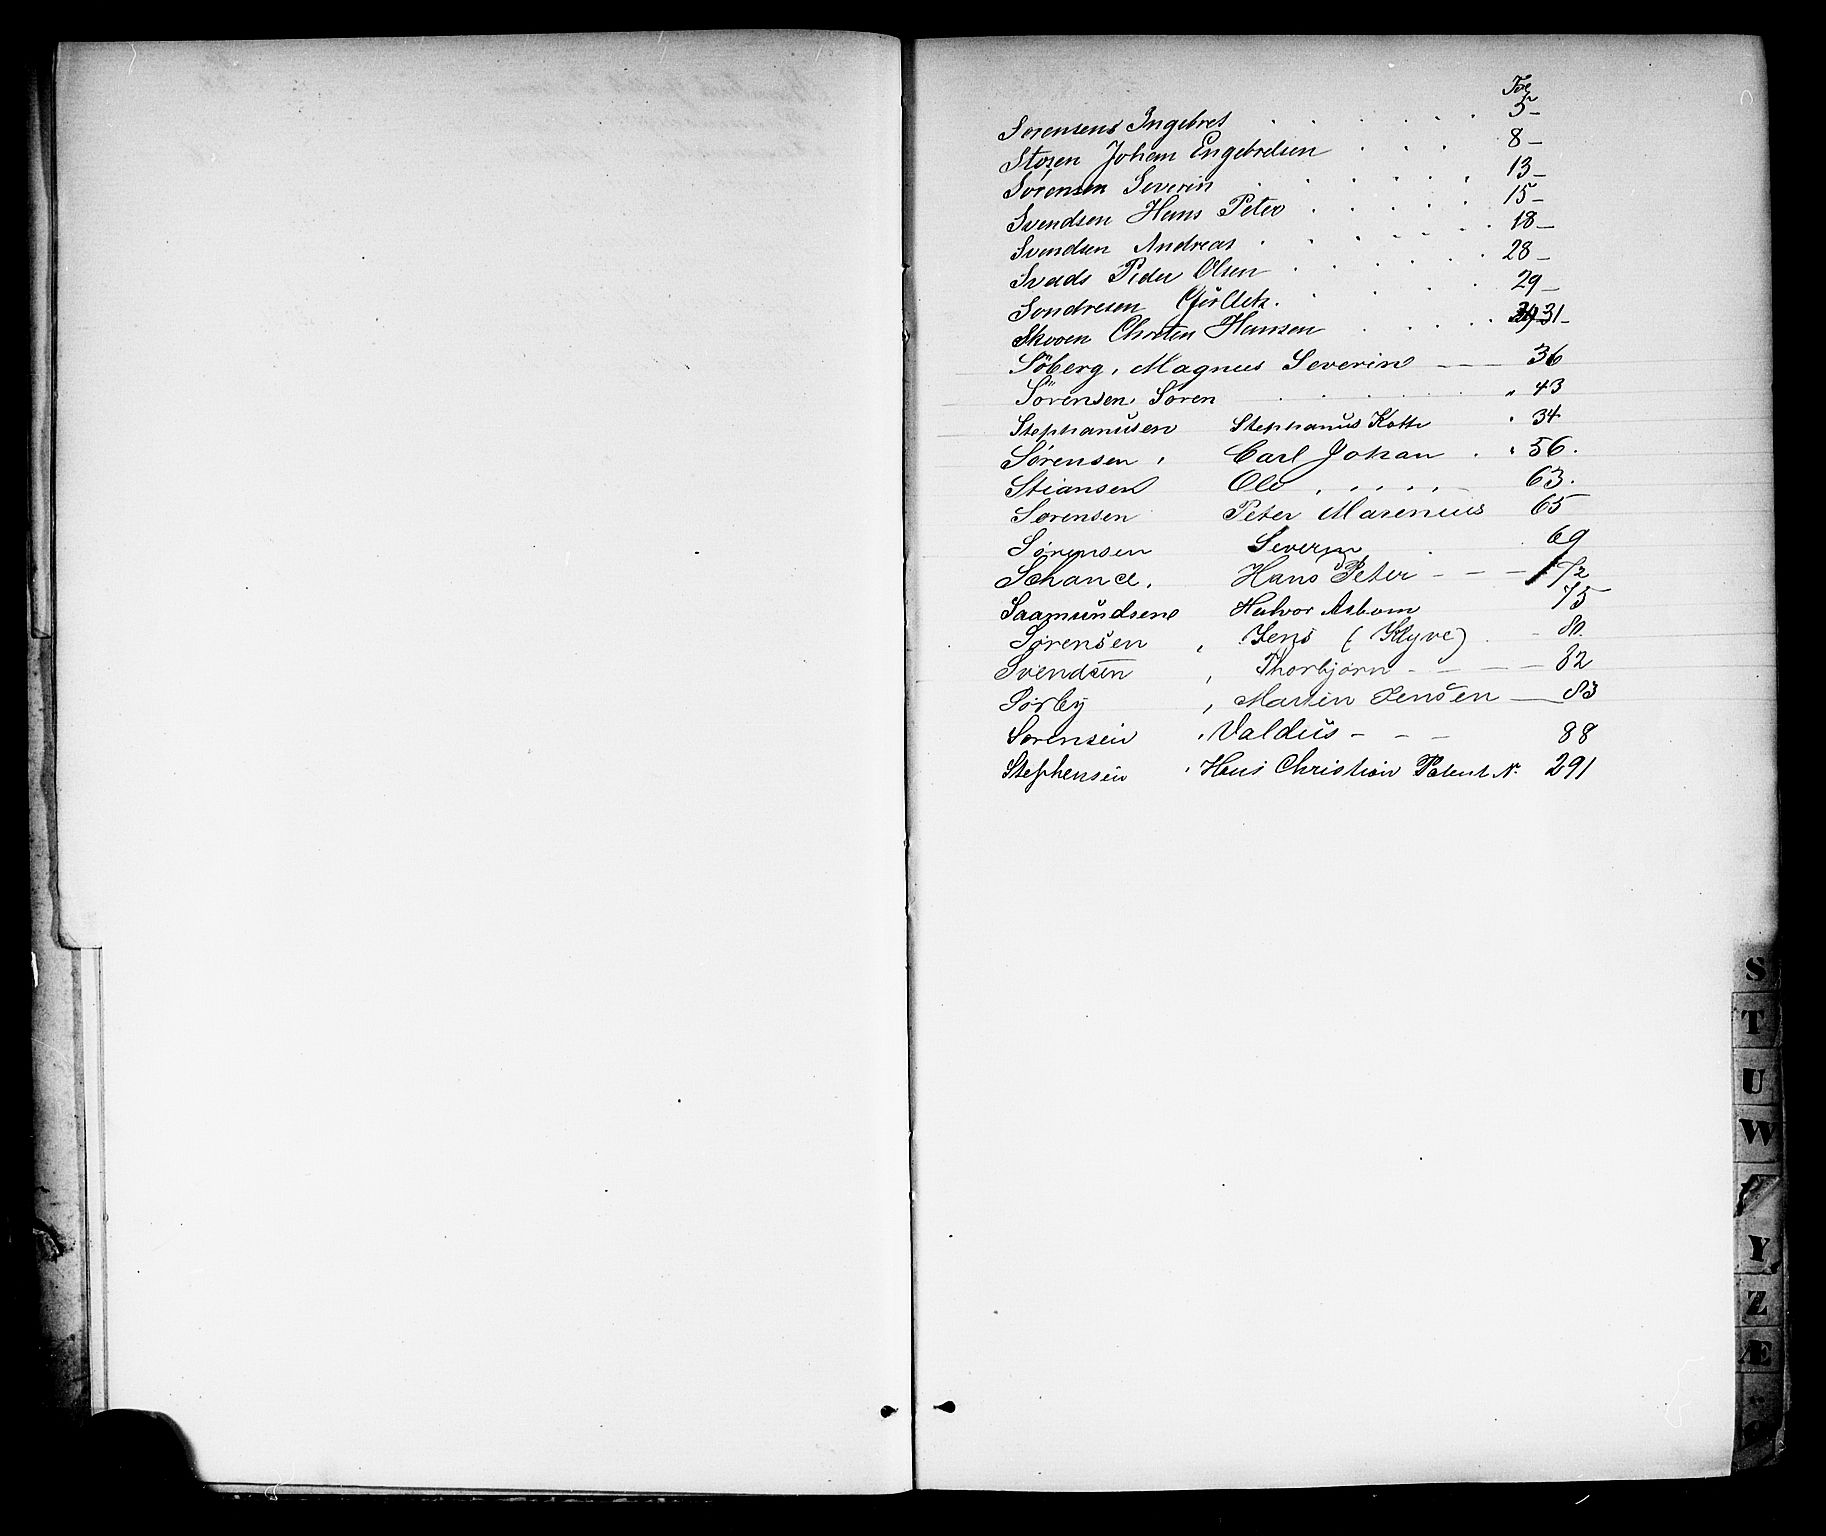 Sörensens Ingebret . . . . . . 5-
Stosen Johan Engebretsen . . . 8-
Sørensen Severin . . . . . . 13-
Svendsen Hans Peter . . . . . 15-
Svendsen Andreas . . . . . . 18-
Svads Peder Olsen . . . . . 28-
Sondresen . . . . . 29-
Skoven Chrsten Hansen . . . . 31-
Söberg, Magnus Severin - - - 36
Sörensen Sören . . . . . " 43
Stephanusen Stephanus Kotte " 34
Sørensen, Carl Johan . " 56.
Stiansen Ole . . . . . 63.
Sørensen Peter Marenius 65
Sørensen Severin . . 69
Schancl. Hans Peter - - - 72
Saamundsen Halvor Asbom 75
Sørensen, Jens (Klyve) . - 80.
Svendsen, Thorbjørn - - - - 82
Sørby, Martin Jensen - 83
Sørensen, Valdus - - - 88
Stephensen, Hans Christian Patent N. 291
S
T
U
W
Y
Z
Æ